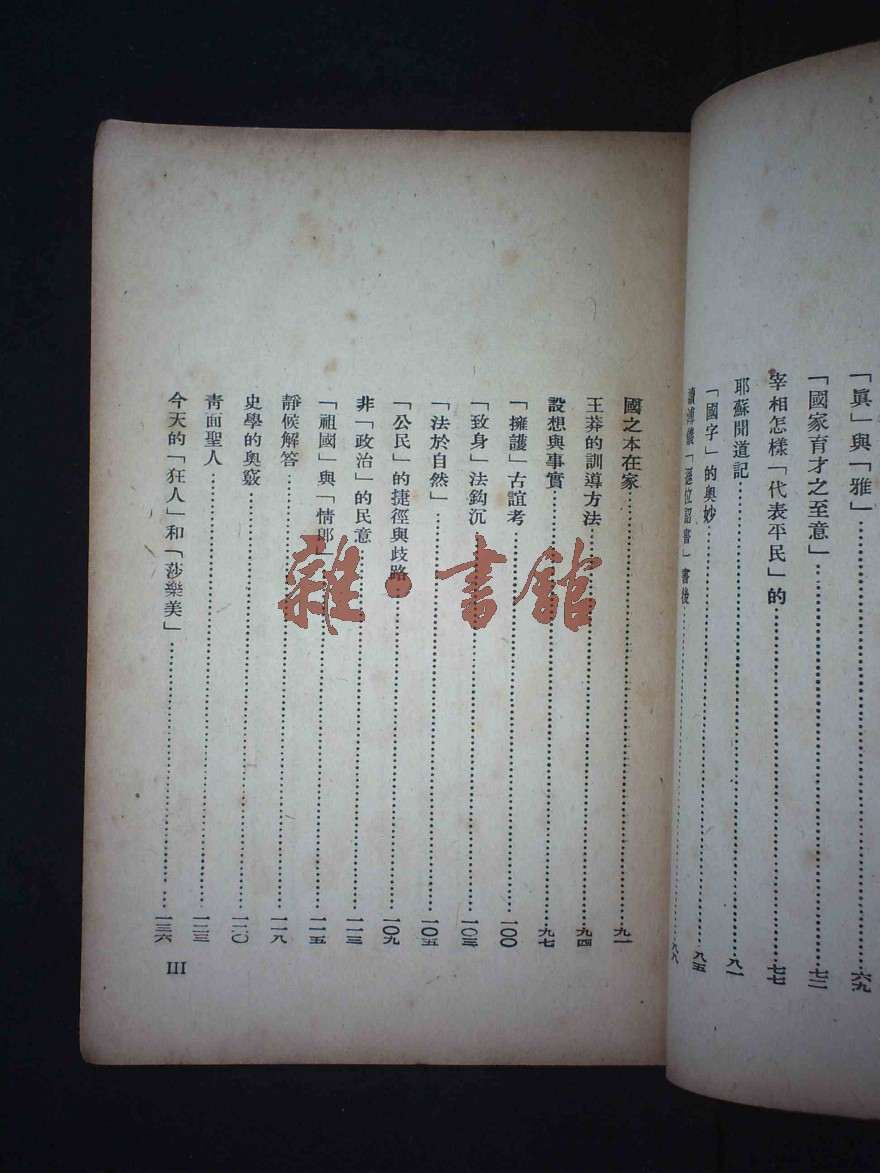 「眞」與「雅」……六九
「國家育才之至意」……七二
宰相怎樣「代表平民」的……七七
耶蘇聞道記……八一
「國字」的奥妙……八五
讀溥儀「遜位詔書」書後……八八
國之本在家……九一
王莽的訓導方法……九四
設想與事實……九七
「擁護」古誼考……一〇〇
「致身」法鈎沉……一〇三
「法於自然」……一〇五
「公民」的捷徑與歧路……一〇九
非「政治」的民意……一一三
「祖國」與「情郎」……一一五
靜候解答……一一八
史學的奥竅……一二〇
靑面聖人……一二三
今天的「狂人」和「莎樂美」……一三六
III
雜·書館